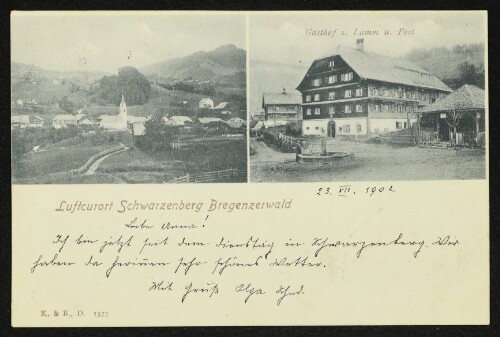 Gasthof z. Lamm u. Post
Luftcurort Schwarzenberg Bregenzerwald
23. VII. 1902
Liebe Anna!
Ich bin jetzt seit dem dienstag in Schwarzenberg. Wir
haben da herinnen sehr schönes Wetter.
Mit Gruß Olga
K. & B., D. 1373